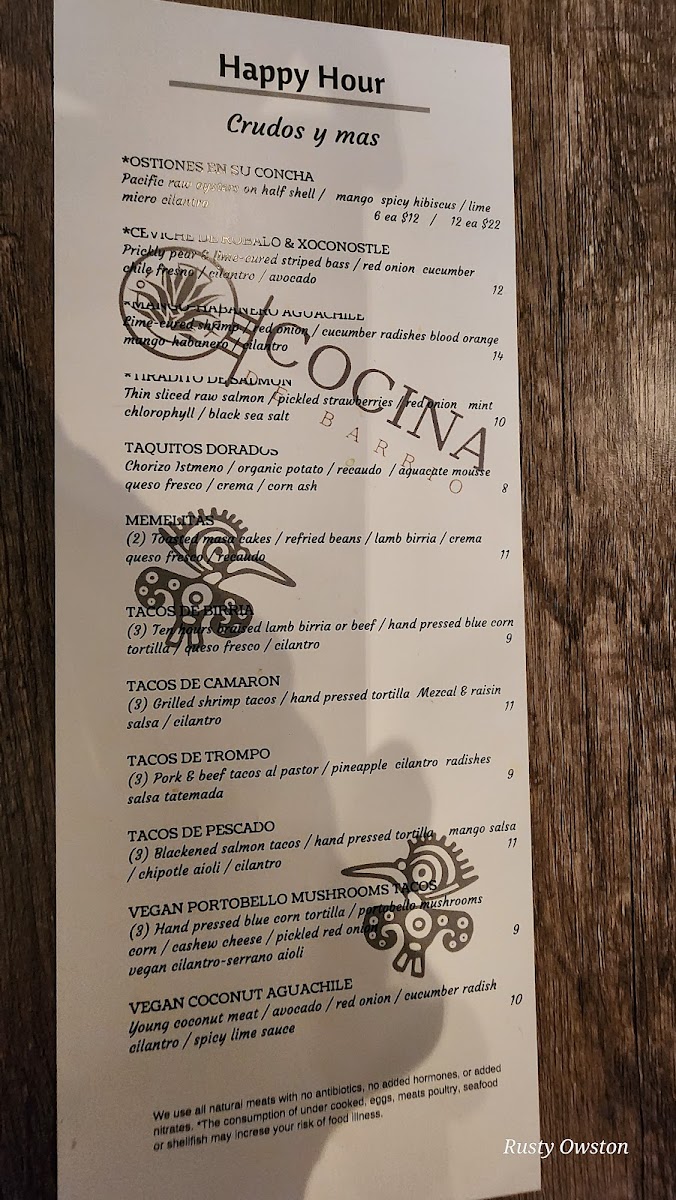 Happy Hour
Crudos y mas
*OSTIONES EN SU CONCHA
Pacific raw oysters on half shell / mango spicy hibiscus / lime
micro cilantro 6 ea $12 / 12 ea $22
*CEVICHE DE ROBALO & XOCONOSTLE
Prickly pear & lime-cured striped bass / red onion cucumber
chile fresno / cilantro / avocado 12
*MANGO-HABANERO AGUACHILE
Lime-cured shrimp / red onion / cucumber radishes blood orange
mango-habanero / cilantro 14
COCINA
DE BARRIO
*TIRADITO DE SALMON
Thin sliced raw salmon / pickled strawberries / red onion mint
chlorophyll / black sea salt 10
TAQUITOS DORADOS
Chorizo Istmeno / organic potato / recaudo / aguacate mousse
queso fresco / crema / corn ash 8
MEMELITAS
(2) Toasted masa cakes / refried beans / lamb birria / crema
queso fresco / recaudo 11
TACOS DE BIRRIA
(3) Ten hours braised lamb birria or beef / hand pressed blue corn
tortilla / queso fresco / cilantro 9
TACOS DE CAMARON
(3) Grilled shrimp tacos / hand pressed tortilla Mezcal & raisin
salsa / cilantro 11
TACOS DE TROMPO
(3) Pork & beef tacos al pastor / pineapple cilantro radishes
salsa tatemada 9
TACOS DE PESCADO
(3) Blackened salmon tacos / hand pressed tortilla mango salsa
/ chipotle aioli / cilantro 11
VEGAN PORTOBELLO MUSHROOMS TACOS
(3) Hand pressed blue corn tortilla / portobello mushrooms
corn / cashew cheese / pickled red onion 9
vegan cilantro-serrano aioli
VEGAN COCONUT AGUACHILE
Young coconut meat / avocado / red onion / cucumber radish
cilantro / spicy lime sauce 10
We use all natural meats with no antibiotics, no added hormones, or added
nitrates. *The consumption of under cooked, eggs, meats poultry, seafood
or shellfish may increse your risk of food illness.
Rusty Owston